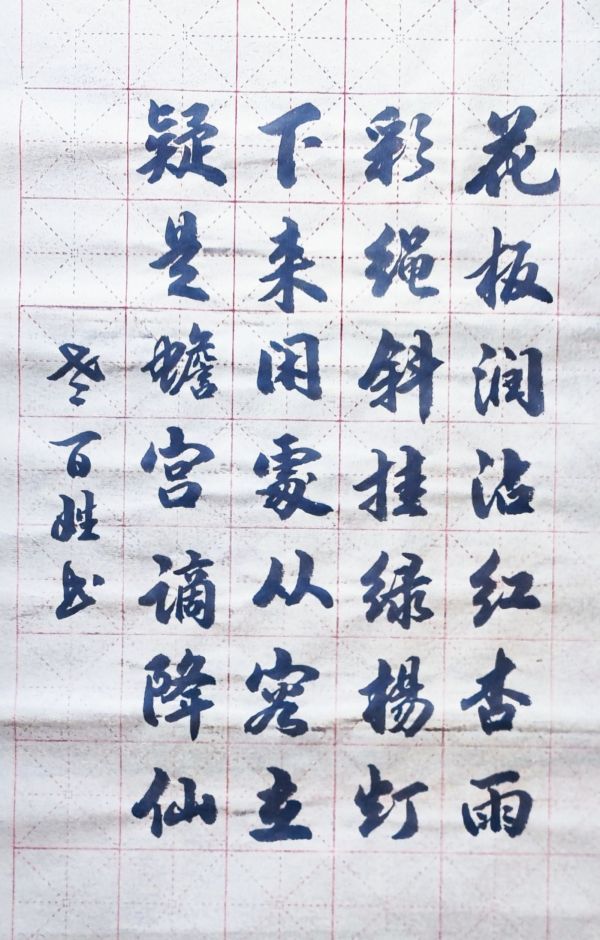 花板润沾红杏雨
彩绳斜挂绿楊灯
下来闲處从容立
疑是蟾宫谪降仙
老百姓书